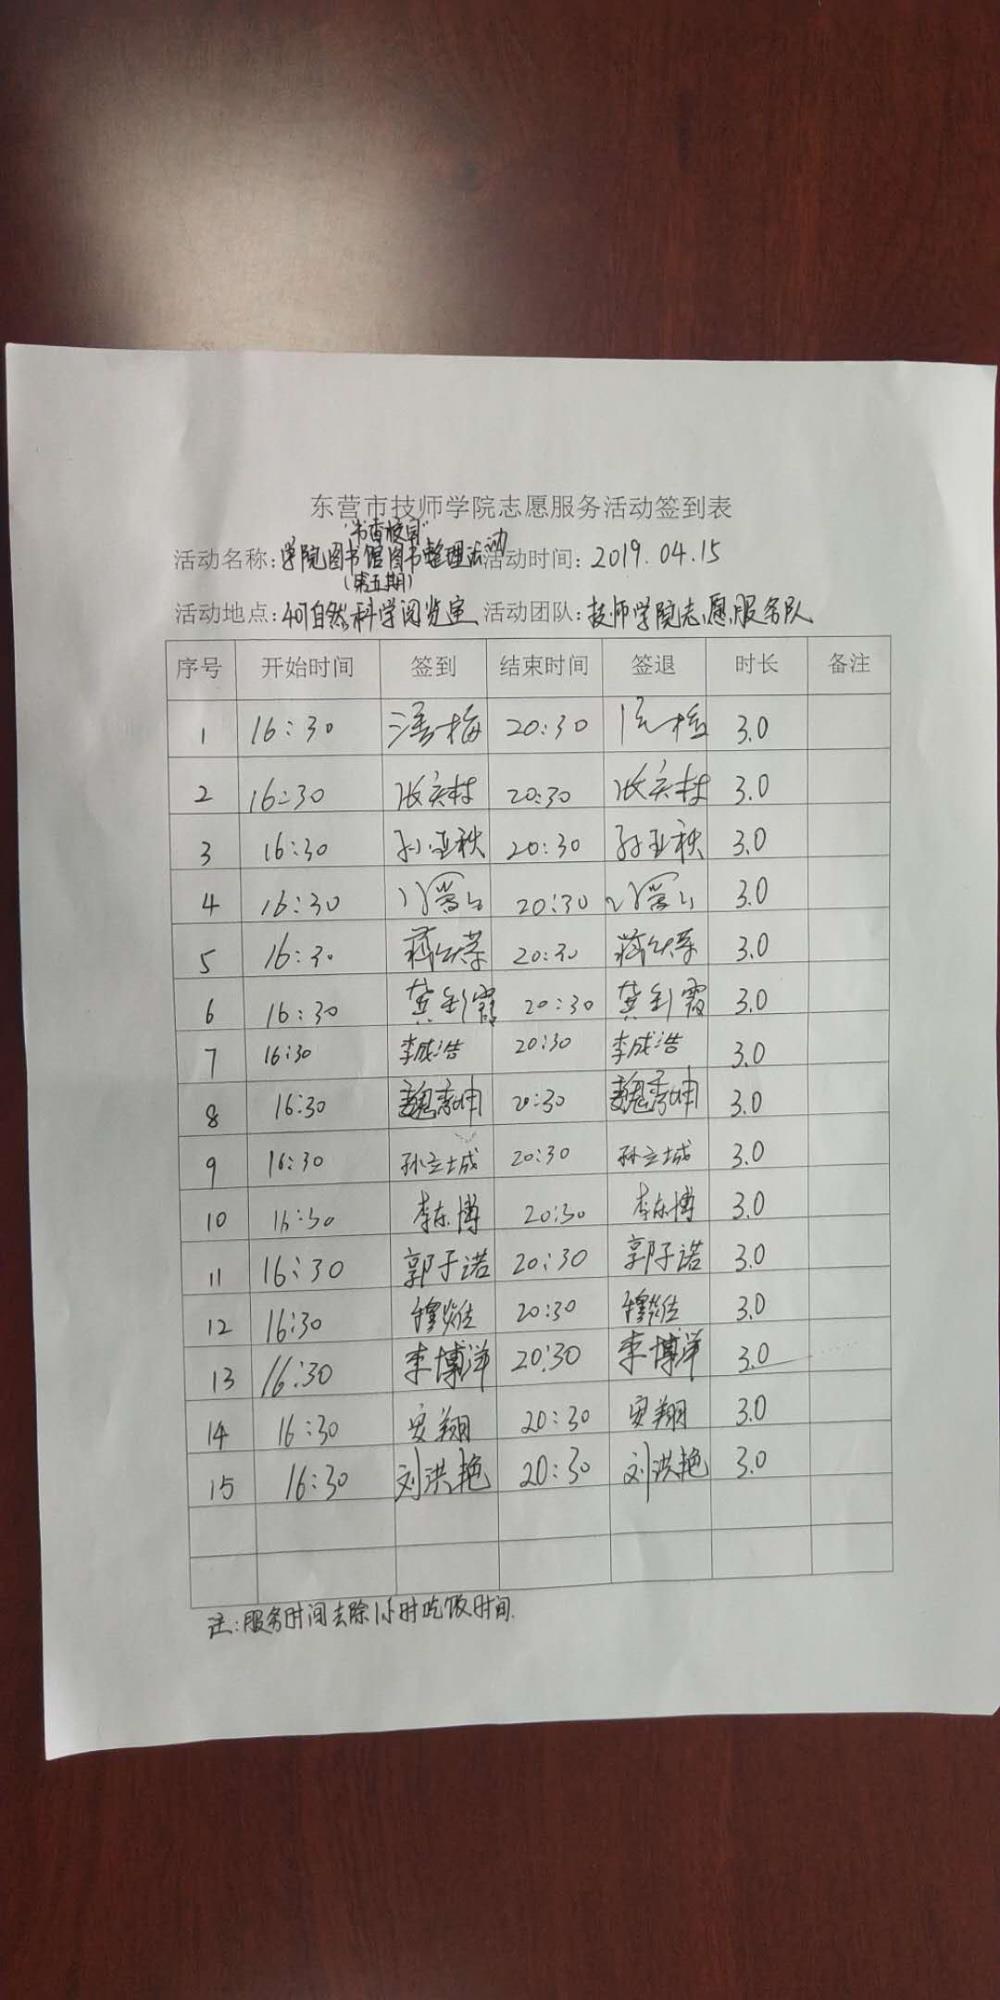 东营市技师学院志愿服务活动签到表
"书香校园"
活动名称：学院图书馆图书整理活动 活动时间：2019.04.15
（第五期）
活动地点：401自然科学阅览室 活动团队：技师学院志愿服务队
序号 开始时间 签到 结束时间 签退 时长 备注
1 16:30 20:30 3.0
2 16:30 20:30 3.0
3 16:30 孙亚秧 20:30 孙亚秧 3.0
4 16:30 20:30 3.0
5 16:30 20:30 3.0
6 16:30 龚利霞 20:30 龚利霞 3.0
7 16:30 李成浩 20:30 李成浩 3.0
8 16:30 魏秀坤 20:30 魏秀坤 3.0
9 16:30 孙立城 20:30 孙立城 3.0
10 16:30 李东博 20:30 李东博 3.0
11 16:30 郭子诺 20:30 郭子诺 3.0
12 16:30 20:30 3.0
13 16:30 李博洋 20:30 李博洋 3.0
14 16:30 安翔 20:30 安翔 3.0
15 16:30 刘洪艳 20:30 刘洪艳 3.0
注：服务时间去除1小时吃饭时间.